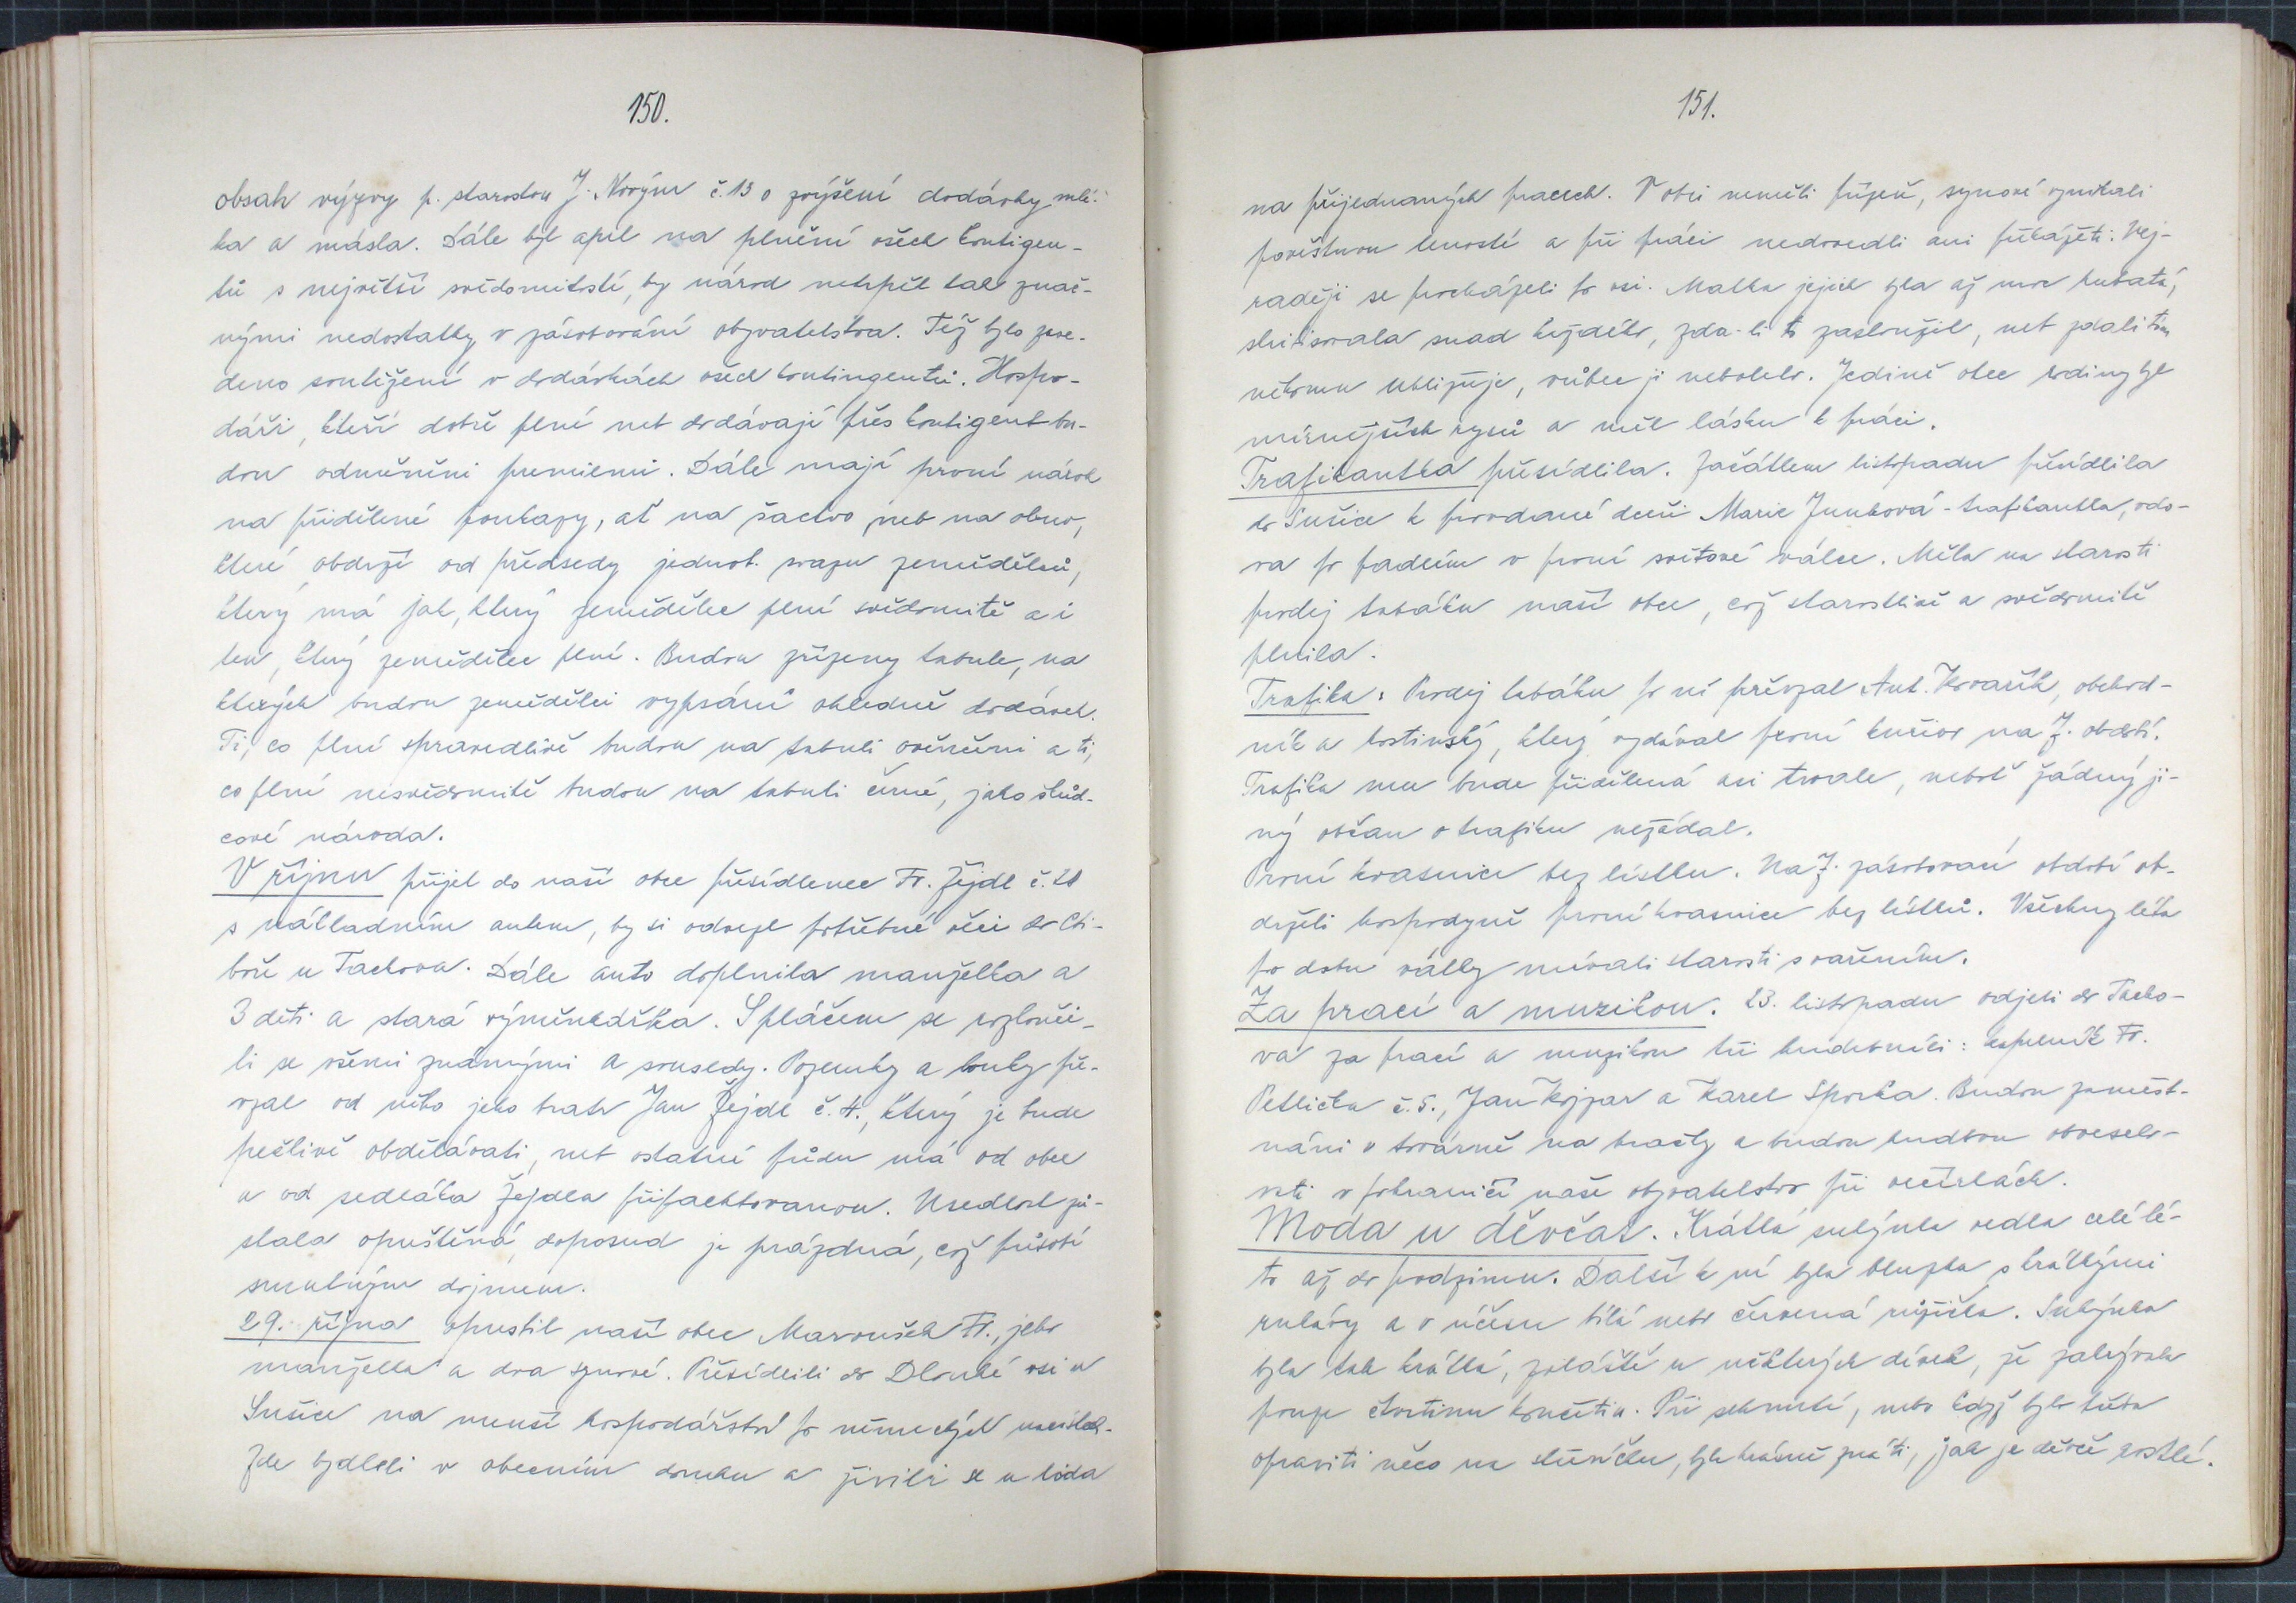 150.
obsah výzvy p. starostou J. Novým č. 13 o zvýšení dodávky mlé-
ka a másla. Dále byl apel na plnění všech kontigen-
tů s největší svědomitostí, by národ netrpěl tak znač-
nými nedostatky v zásobování obyvatelstva. Též bylo zave-
deno soutěžení v dodávkách všech kontingentů. Hospo-
dáři, kteří dobře plní neb dodávají přes kontigent bu-
dou odměněni premiemi. Dále mají první nárok
na přidělené poukazy, ať na šactvo neb na obuv,
které obdrží od předsedy jednot. svazu zemědělců,
který má jak, který zemědělec plní svědomitě a i
ten, který zemědělec plní. Budou zřízeny tabule, na
kterých budou zemědělci vypsáni ohledně dodávek.
Ti, co plní spravedlivě budou na tabuliověnčeni a ti,
co plní nesvědomitě budou na tabuli černé, jako škůd-
cové národa.
V říjnu přijel do naší obce přesídlenec Fr. Žejdl č. 20
s nákladním autem, by si odvezl potřebné věci do Cti-
boře u Tachova. Dále auto doplnila manželka a
3 děti a stará výměnkářka. S pláčem se rozlouči-
li se všemi známými a sousedy. Pozemky a louky pře-
vzal od něho jeho bratr Jan Žejdl č. 4., který je bude
pečlivě obdělávati, neb ostatní půdu má od obce
a od sedláka Žejdla připachtovanou. Usedlost zů-
stala opuštěná doposud je prázdná, což působí
smutným dojmem.
29. října opustil naší obec Maroušek Fr., jeho
manželka a dva synové. Přesídlili do Dlouhé vsi u
Sušice na menší hospodářství po německých usedlích.
Zde bydleli v obecním domku a živili se u lida
151.
na přijednaných pracech. V obci neměli přízeň, synové vynikali
pověstnou leností a při práci nedovedli ani přikázěti. Nej-
raději se procházeli po vsi. Matka jejich byla až moc hubatá,
skritisovala snad každého, zda-li to zasloužil, neb zdali tím
někomu ubližuje, vůbec ji nebolelo. Jedině otec rodiny byl
mírnějších rysů a měl lásku k práci.
Trafikantka přesídlila. Začátkem listopadu přesídlila
do Sušice k provdané dceři Marie Junková - trafikantka, vdo-
va po padlém v první světové válce. Měla na starosti
prodej tabáku naší obce, což starostlivě a svědomitě
plnila.
Trafika: Prodej tabáku po ní převzal Ant. Kovařík, obchod-
ník a hostinský, který vydával první kuřivo na J. období.
Trafika mu bude přidělená asi trvale, neboť žádný ji-
ný občan o trafiku nežádal.
První kvasnice bez lístku. Na J. zásobovací období ob-
drželi hospodyně první kvasnice bez lístků. Všechny léta
po dobu války mívali starosti s vařením.
Za prací a muzikou. 23. listopadu odjeli do Tacho-
va za prací a muzikou tři hudebníci: kapelník Fr.
Petlička č. 5., Jan Kojzar a Karel Sporka. Budou zaměst-
náni v továrně na hračky a budou hudbou obveselo-
vati v pohraničí naše obyvatelstvo při večírkách.
Moda u děvčat. Krátká sukýnka vedla celé lé-
to až do podzimu. Další k ní byla bluzka s krátkými
rukávy a v účesu bílá nebo červená růžička. Sukýnka
byla tak krátká, zvláště u některých dívek, že zakrývala
pouze čtvrtinu končetin. Při sehnutí, nebo když bylo třeba
opraviti něco na střevíčku, bylo krásně znáti, jak je děvče rostlé.